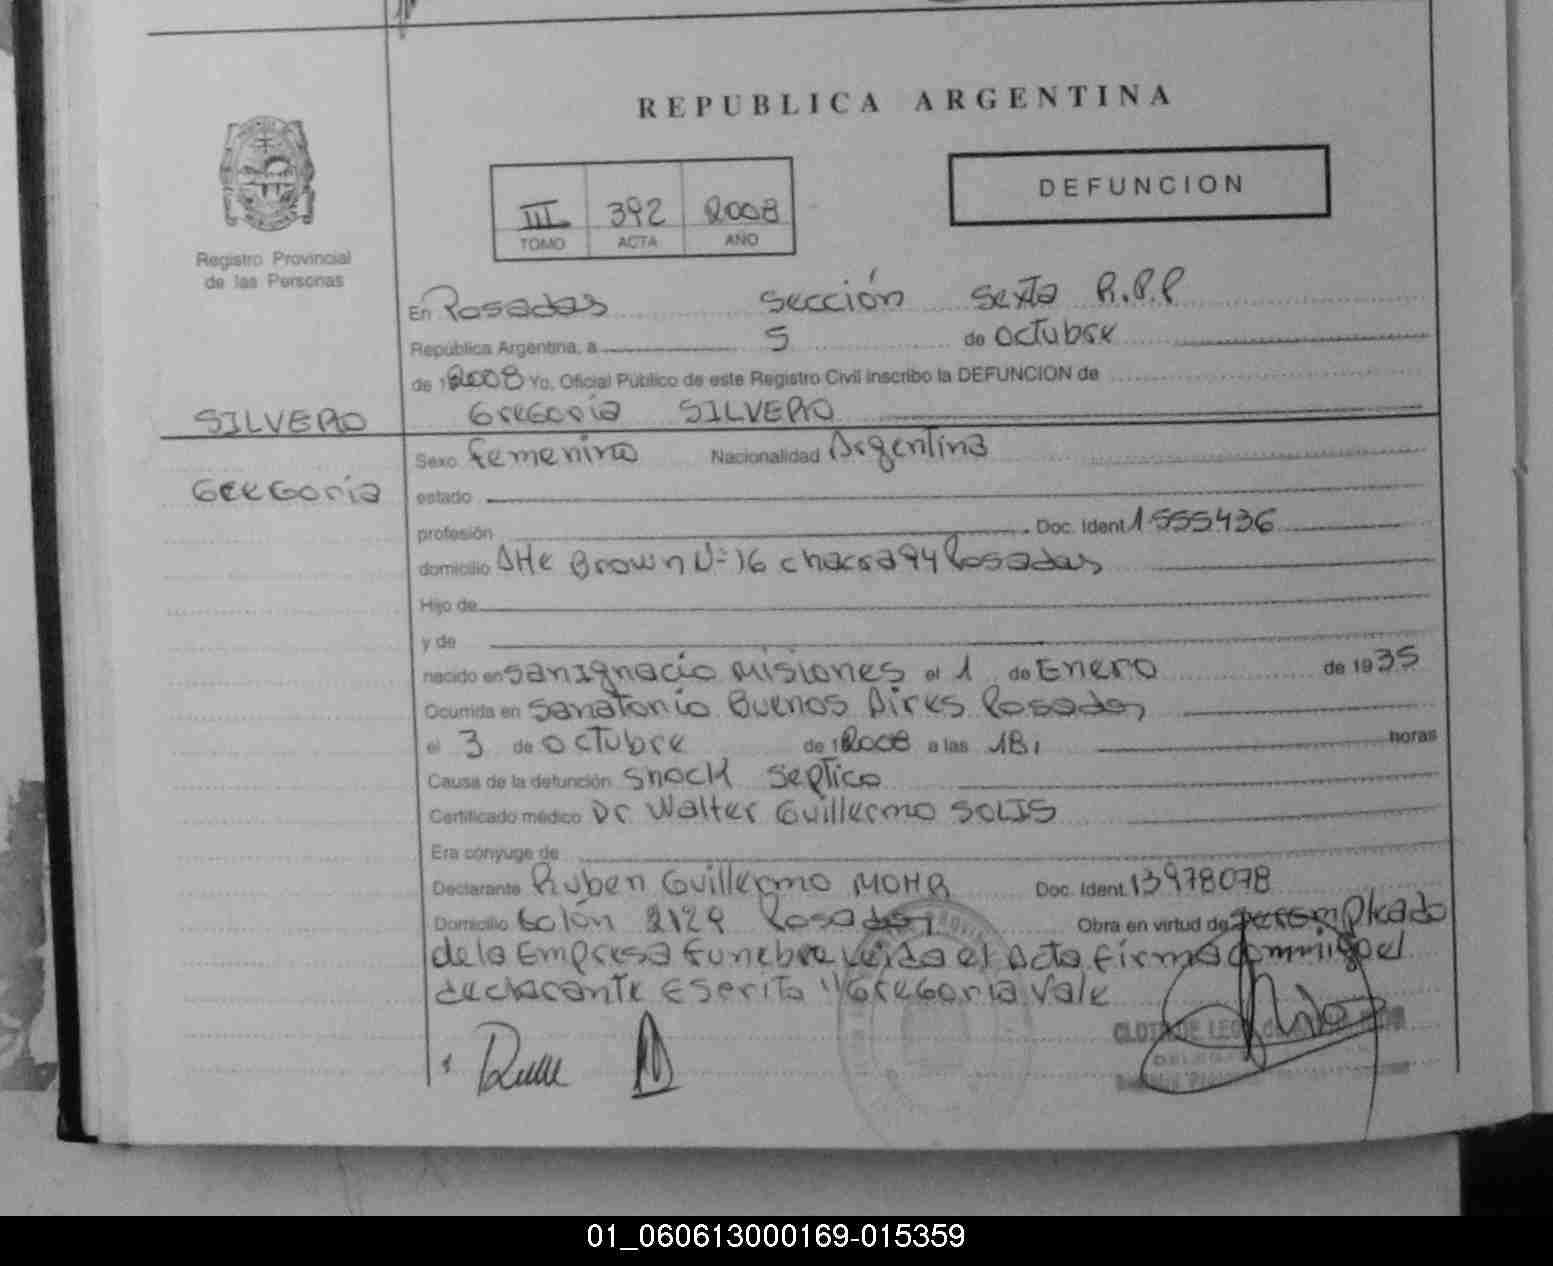 REPUBLICA ARGENTINA
DEFUNCION
III 392 2008
TOMO ACTA AÑO
Registro Provincial
de las Personas
En Posadas Sección Sexta R.P.P
República Argentina, a 5 de octubre
de 12008 Yo, Oficial Público de este Registro Civil inscribo la DEFUNCION de
SILVERO Gregoria SILVERO
Sexo femenino Nacionalidad Argentina
Gregoria estado
profesión Doc. Ident. 1555436
domicilio Alte Brown Nº 16 chacra 94 Posadas
Hijo de
y de
nacido en San Ignacio Misiones el 1 de Enero de 1935
Ocurrida en Sanatorio Buenos Aires Posadas
el 3 de octubre de 12008 a las 18, horas
Causa de la defunción Shock Septico
Certificado médico Dr Walter Guillermo SOLIS
Era cónyuge de
Declarante Ruben Guillermo MOHR Doc. Ident. 13978078
Domicilio Colón 2129 Posadas Obra en virtud de ser empleado
de la Empresa funebre leida el Acta firma conmigo el
declarante Escrito "Gregoria Vale
01_060613000169-015359